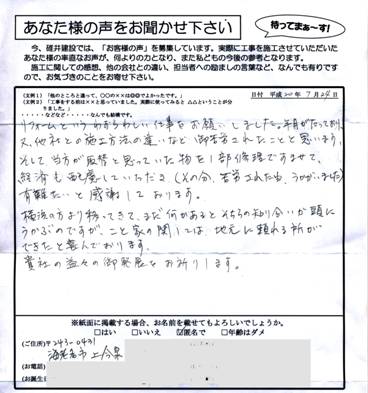 あなた様の声をお聞かせ下さい
待ってまぁ〜す!
今、碓井建設では、「お客様の声」を募集しています。実際に工事を施工させていただいた
あなた様の率直なお声が、何よりの力となり、また私どもの今後の参考となります。
施工に関しての感想、他の会社との違い、担当者への励ましの言葉など、なんでも有りです
ので、お気づきのことをお寄せ下さい。
(文例1)「他のところと違って、○○の××は良かったです。」
日付 平成20年 7月24日
(文例2)「工事をする前は××と思っていました。実際に使ってみると△△ということが分
りました。」
・・・・などなど・・・・なんでも結構です。
リフォームというめずらしい仕事をお願いしました。年月がたっており
又、他社との施工方法の違いなど御苦労されたことと思います。
そして当方が反替と思っていた物を1部修理ですませて、
経済も配慮していただき(その分、苦労された由、うかがいました)
有難たいと感謝して おります。
横浜の方より移ってきて、まだ何かあるとそちらの知り合いが頭に
うかぶのですが、こと家の関しては 地元に頼れる所が
できたと喜んでおります。
貴社の益々の御発展をお祈りします。
※紙面に掲載する場合、お名前を載せてもよろしいでしょうか。
□はい □いいえ ☑匿名で □年齢はダメ
(ご住所)〒243-0431
海老名市上今泉
(お電話)
(お誕生日